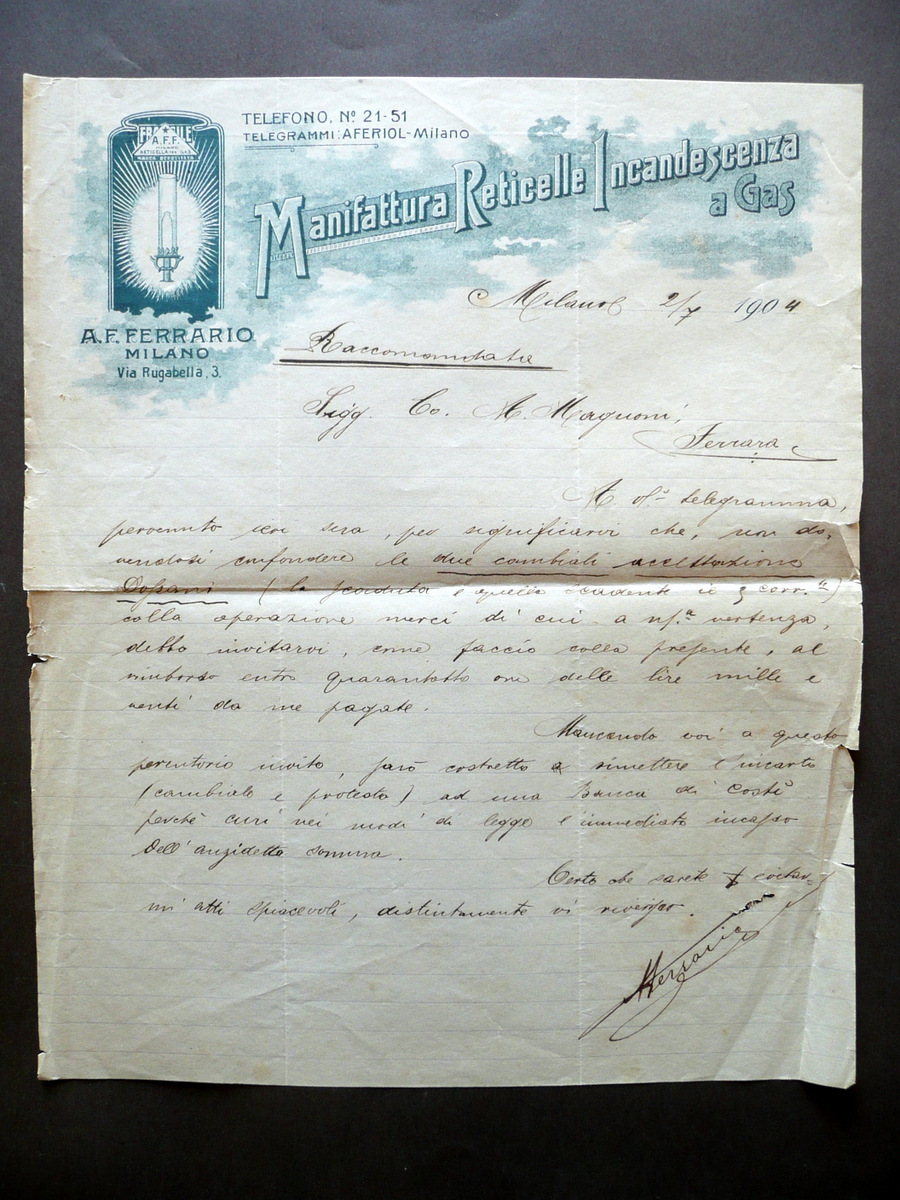 FRAGILE
A.F.F.
MILANO
RETICELLA PER GAS
MARCA DEPOSITATA
TELEFONO. Nº 21-51
TELEGRAMMI: AFERIOL-Milano
Manifattura Reticelle Incandescenza
a Gas
A.F. FERRARIO
MILANO
Via Rugabella, 3.
Milano 2/7 1904
Raccomandata
Sigg. Co. A. Magnoni,
Ferrara
A telegramma,
pervenuto ieri sera, per significarvi che, non do-
vendosi confondere le due cambiali accettazione
(la scaduta e quella scadente il 3 corr.te)
colla operazione merci di cui a n/.a vertenza,
debbo invitarvi, come faccio colla presente, al
rimborso entro quarantotto ore delle lire mille e
venti da me pagate.
Mancando voi a questo
perentorio invito, sarò costretto a rimettere l'incarto
(cambiale e protesto) ad una Banca di costì
perchè curi nei modi di legge l'immediato incasso
dell'anzidetta somma.
Certo che sarete evitar-
mi atti spiacevoli, distintamente vi riverisco.
AFerrario